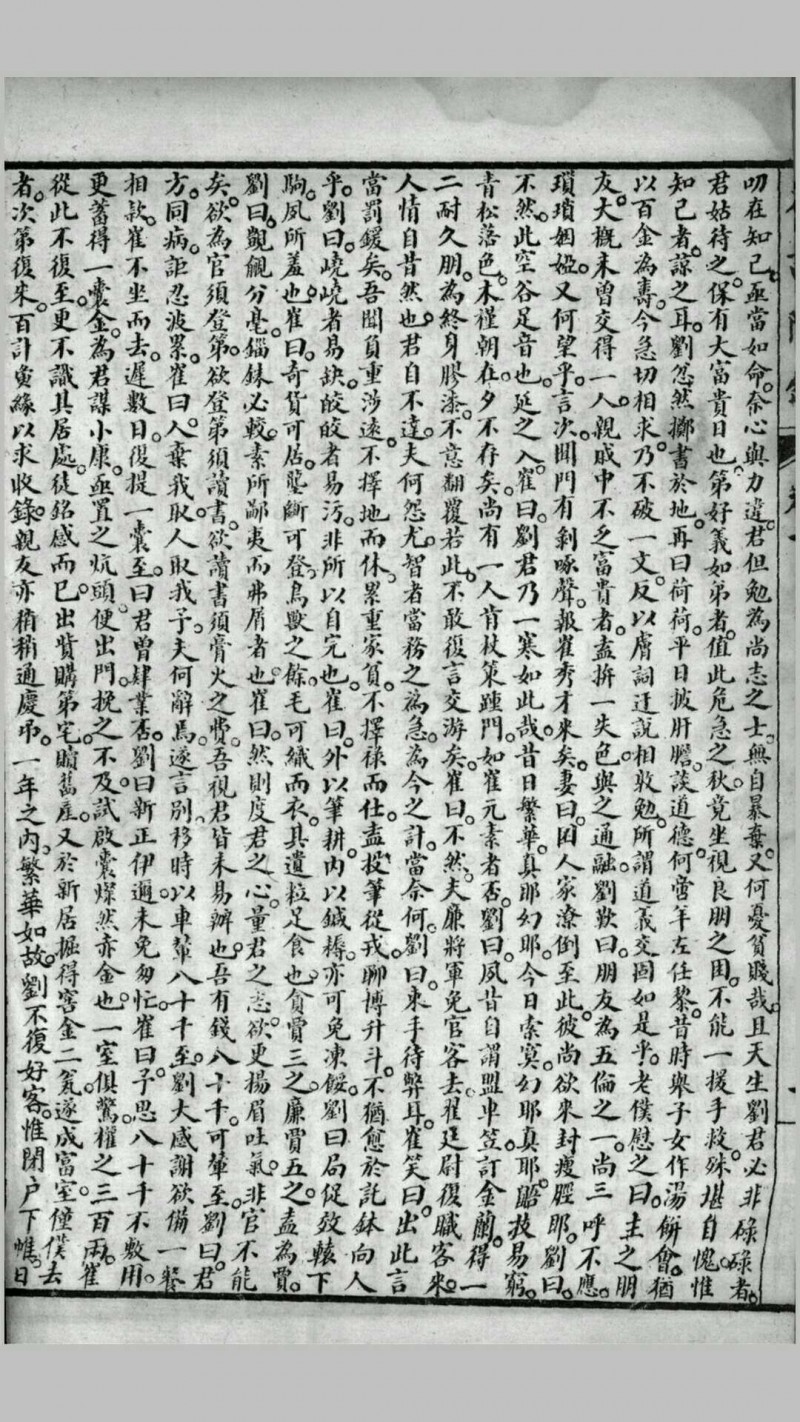 叨在知己。亟當如命。奈心與力違。君但勉為尚志之士。無自暴棄。又何憂貧賤哉。且天生劉君必非碌碌者。
君姑待之。保有大富貴日也。第好義如弟者。值此危急之秋。竟坐視良朋之困。不能一援手救。殊堪自愧。惟
知己者諒之耳。劉忽然擲書於地。再曰荷荷。平日披肝膽。談道德。何嘗年左任黎。昔時舉子女作湯餅會。猶
以百金為壽。今急切相求。乃不破一文。反以膚詞迂說相敦勉。所謂道義交固如是乎。老僕慰之曰。主之朋
友。大概未曾交得一人。親戚中不乏富貴者。盍拚一失色與之通融。劉歎曰。朋友為五倫之一。尚三呼不應。
瑣瑣姻婭。又何望乎。言次。聞門有剝啄聲。報崔秀才來矣。妻曰。因人家潦倒至此。彼尚欲來封瘦脛耶。劉曰。
不然。此空谷足音也。延之入。崔曰。劉君乃一寒如此哉。昔日繁華。真耶幻耶。今日索寞。幻耶真耶。黠技易窮。
青松落色。木槿朝在。夕不存矣。尚有一人肯杖策踵門。如崔元素者否。劉曰。夙昔自謂盟車笠。訂金蘭。得一
二耐久朋。為終身膠漆。不意翻覆若此。不敢復言交游矣。崔曰。不然。夫廉將軍免官客去。翟廷尉復職客來。
人情自昔然也。君自不達。夫何怨尤。智者當務之為急。為今之計。當奈何。劉曰。束手待斃耳。崔笑曰。出此言
當罰鍰矣。吾聞負重涉遠。不擇地而休。累重家貧。不擇祿而仕。盍投筆從戎。聊博升斗。不猶愈於託鉢向人
乎。劉曰。嶢嶢者易缺。皎皎者易污。非所以自完也。崔曰。外以筆耕。內以鍼耨。亦可免凍餒。劉曰。局促效轅下
駒。夙所羞也。崔曰。奇貨可居。壟斷可登。鳥獸之餘。毛可織而衣。其遺粒足食也。貪賈三之。廉賈五之。盍為賈。
劉曰。覬覦分毫。錙銖必較。素所鄙夷而弗屑者也。崔曰。然則度君之心。量君之志。欲更揚眉吐氣。非官不能
矣。欲為官須登第。欲登第須讀書。欲讀書須膏火之費。吾視君皆未易辦也。吾有錢八十千。可輦至。劉曰。君
方同病。詎忍波累。崔曰。人棄我取。人取我予。夫何辭焉。遂言別。移時以車輦八十千至。劉大感謝。欲備一餐
相款。崔不坐而去。遲數日。復提一囊至。曰君曾肄業否。劉曰新正伊邇。未免匆忙。崔曰。予思八十千不敷用。
更蓄得一囊金。為君謀小康。亟置之炕頭。便出門。挽之不及。試啟囊。燦然赤金也。一室俱驚。權之三百兩。崔
從此不復至。更不識其居處。徒銘感而已。出貲購第宅。贖舊產。又於新居掘得窖金二瓮。遂成富室。僮僕去
者。次第復來。百計夤緣以求收錄。親友亦稍稍通慶弔。一年之內。繁華如故。劉不復好客。惟閉戶下帷。日